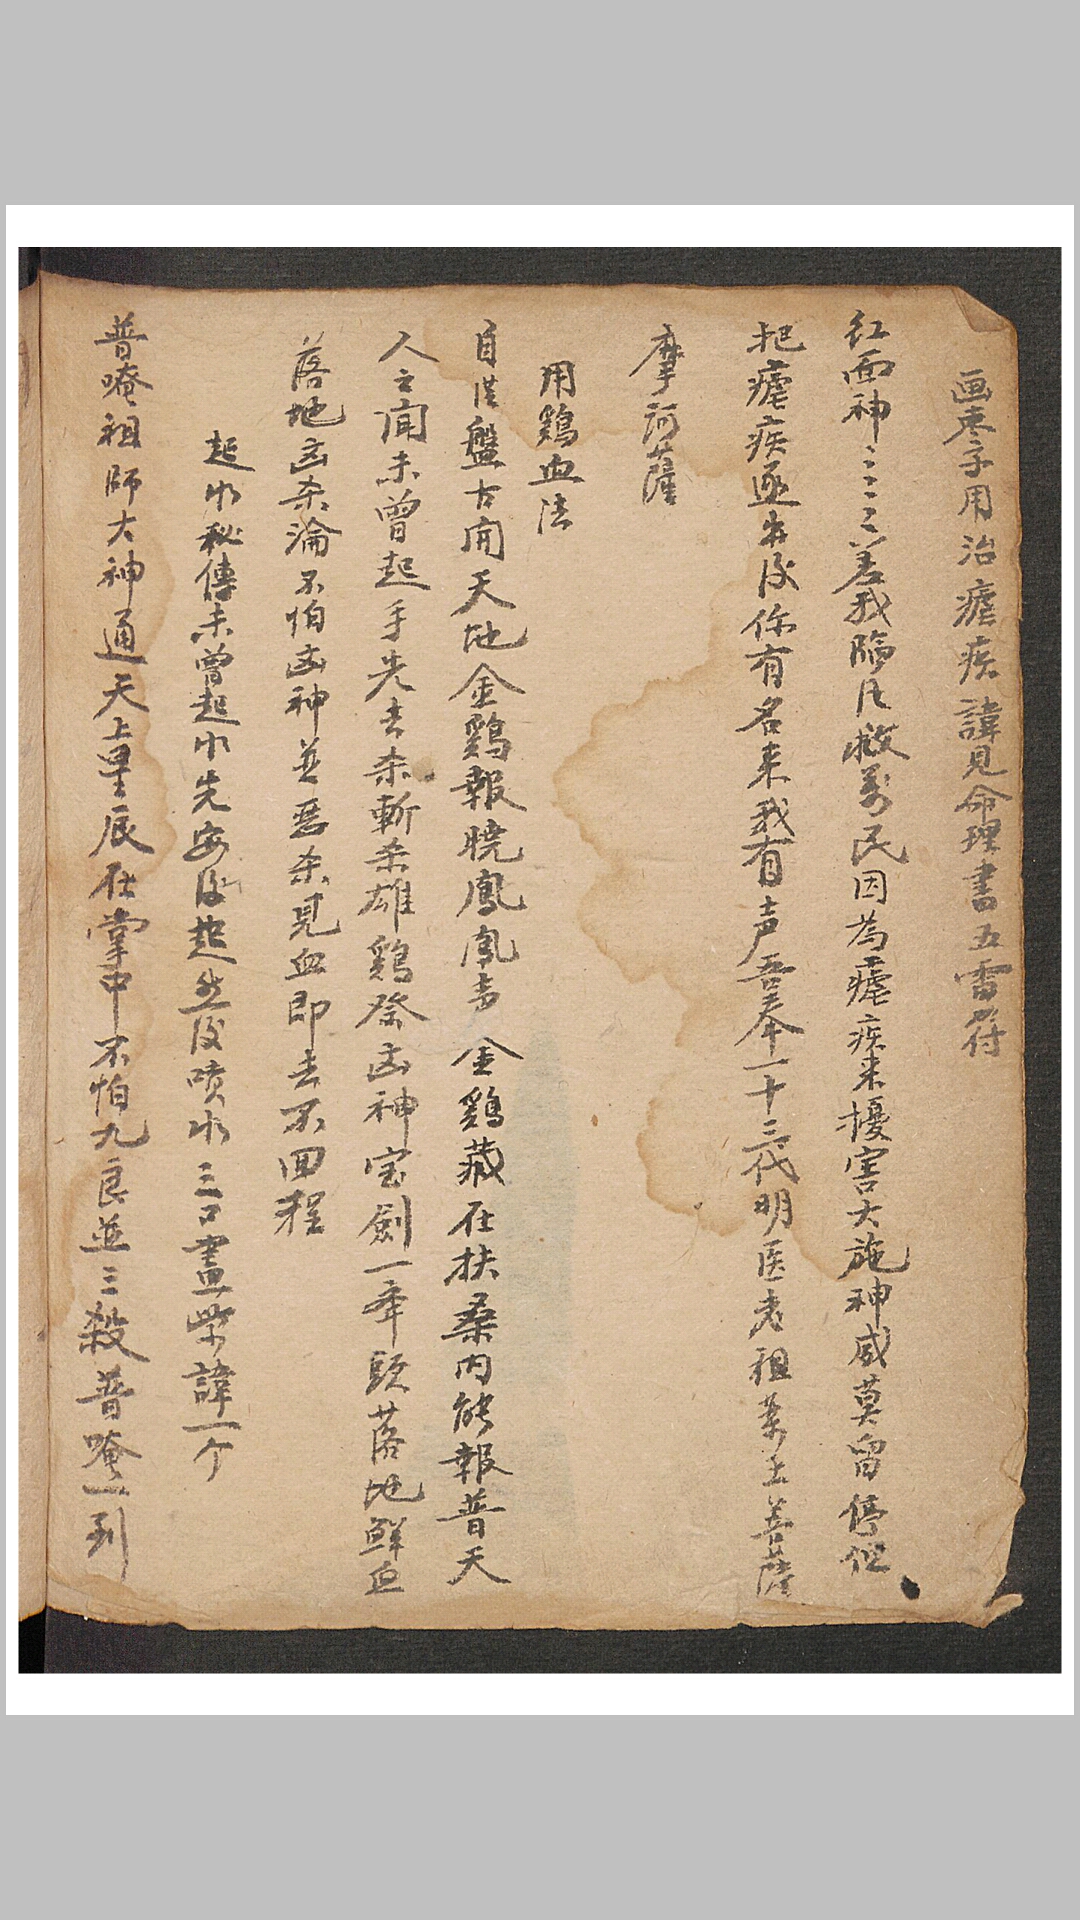 画枣子用治瘧疾諱見命理書五雷符
红面神〻〻〻差我臨凡救萬民因為瘧疾来擾害大施神威莫留停似
把瘧疾逐出後你有名来我有声吾奉一十三代明医老祖药王菩薩
摩訶薩
用鷄血法
自從盤古開天地金鷄報曉鳳凰声金鷄藏在扶桑内能報普天
人言闻未曾起手先去杀斬杀雄鷄祭凶神宝劍一舉頭落地鮮血
落地凶杀淪不怕凶神並惡杀見血即去不回程
起水秘傳未曾起水先安後起然後喷水三口畫紫諱一个
普唵祖師大神通天上星辰在掌中不怕九良並三殺普唵一到